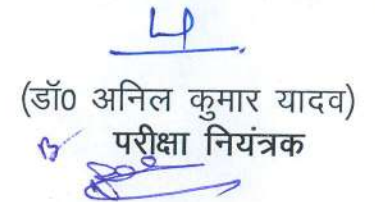 (डॉ0 अनिल कुमार यादव)
परीक्षा नियंत्रक